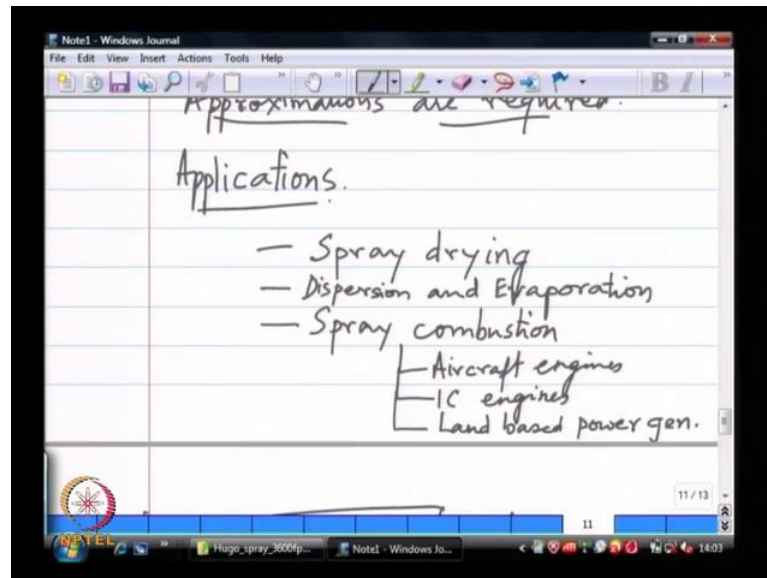 Note1 - Windows Journal
File Edit View Insert Actions Tools Help
B I
Approximations are required.
Applications.
— Spray drying
— Dispersion and Evaporation
— Spray combustion
Aircraft engines
IC engines
Land based power gen.
11 / 13
11
NPTEL
Hugo_spray_3600fp...
Note1 - Windows Jo...
14:03